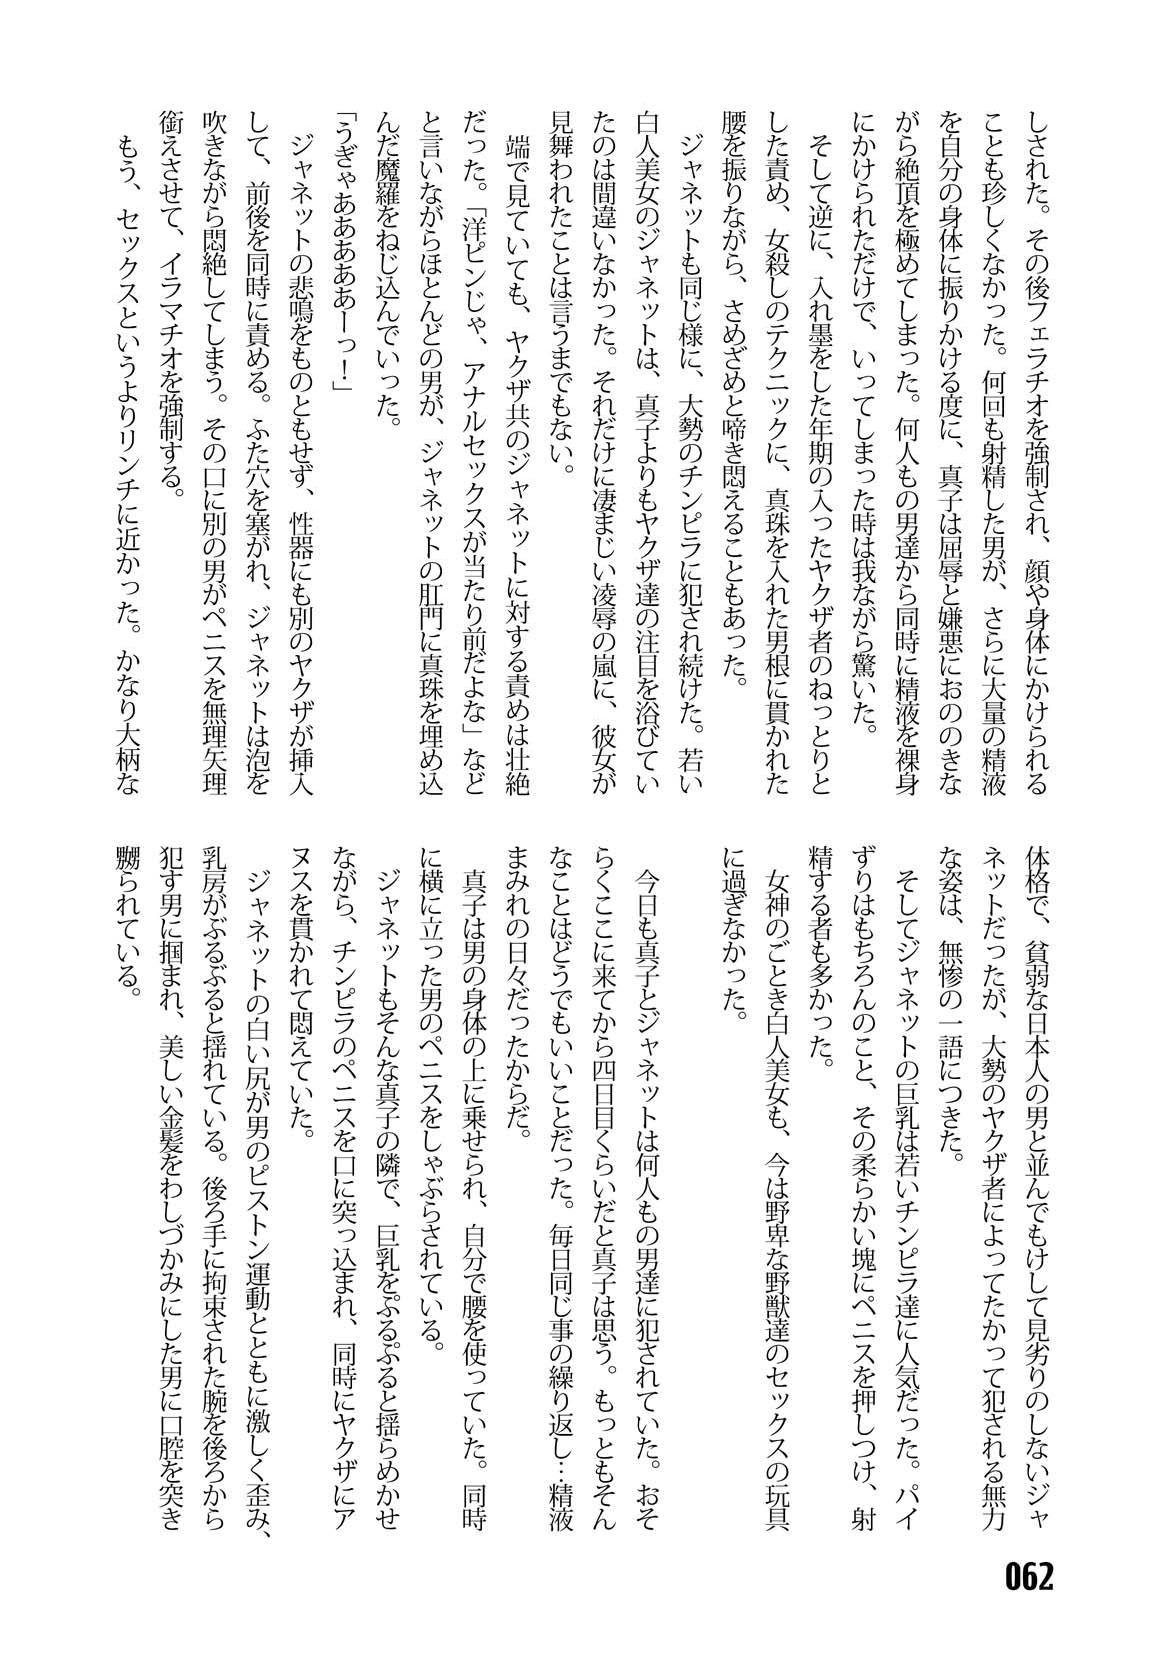 しされた。その後フェラチオを強制され、顔や身体にかけられる
ことも珍しくなかった。何回も射精した男が、さらに大量の精液
を自分の身体に振りかける度に、真子は屈辱と嫌悪におののきな
がら絶頂を極めてしまった。何人もの男達から同時に精液を裸身
にかけられただけで、いってしまった時は我ながら驚いた。
そして逆に、入れ墨をした年期の入ったヤクザ者のねっとりと
した責め、女殺しのテクニックに、真珠を入れた男根に貫かれた
腰を振りながら、さめざめと啼き悶えることもあった。
ジャネットも同じ様に、大勢のチンピラに犯され続けた。若い
白人美女のジャネットは、真子よりもヤクザ達の注目を浴びてい
たのは間違いなかった。それだけに凄まじい凌辱の嵐に、彼女が
見舞われたことは言うまでもない。
端で見ていても、ヤクザ共のジャネットに対する責めは壮絶
だった。「洋ピンじゃ、アナルセックスが当たり前だよな」など
と言いながらほとんどの男が、ジャネットの肛門に真珠を埋め込
んだ魔羅をねじ込んでいった。
「うぎゃあああああーっ！」
ジャネットの悲鳴をものともせず、性器にも別のヤクザが挿入
して、前後を同時に責める。ふた穴を塞がれ、ジャネットは泡を
吹きながら悶絶してしまう。その口に別の男がペニスを無理矢理
銜えさせて、イラマチオを強制する。
もう、セックスというよりリンチに近かった。かなり大柄な
体格で、貧弱な日本人の男と並んでもけして見劣りのしないジャ
ネットだったが、大勢のヤクザ者によってたかって犯される無力
な姿は、無惨の一語につきた。
そしてジャネットの巨乳は若いチンピラ達に人気だった。パイ
ずりはもちろんのこと、その柔らかい塊にペニスを押しつけ、射
精する者も多かった。
女神のごとき白人美女も、今は野卑な野獣達のセックスの玩具
に過ぎなかった。
今日も真子とジャネットは何人もの男達に犯されていた。おそ
らくここに来てから四日目くらいだと真子は思う。もっともそん
なことはどうでもいいことだった。毎日同じ事の繰り返し…精液
まみれの日々だったからだ。
真子は男の身体の上に乗せられ、自分で腰を使っていた。同時
に横に立った男のペニスをしゃぶらされている。
ジャネットもそんな真子の隣で、巨乳をぷるぷると揺らめかせ
ながら、チンピラのペニスを口に突っ込まれ、同時にヤクザにア
ヌスを貫かれて悶えていた。
ジャネットの白い尻が男のピストン運動とともに激しく歪み、
乳房がぶるぶると揺れている。後ろ手に拘束された腕を後ろから
犯す男に掴まれ、美しい金髪をわしづかみにした男に口腔を突き
嬲られている。
062